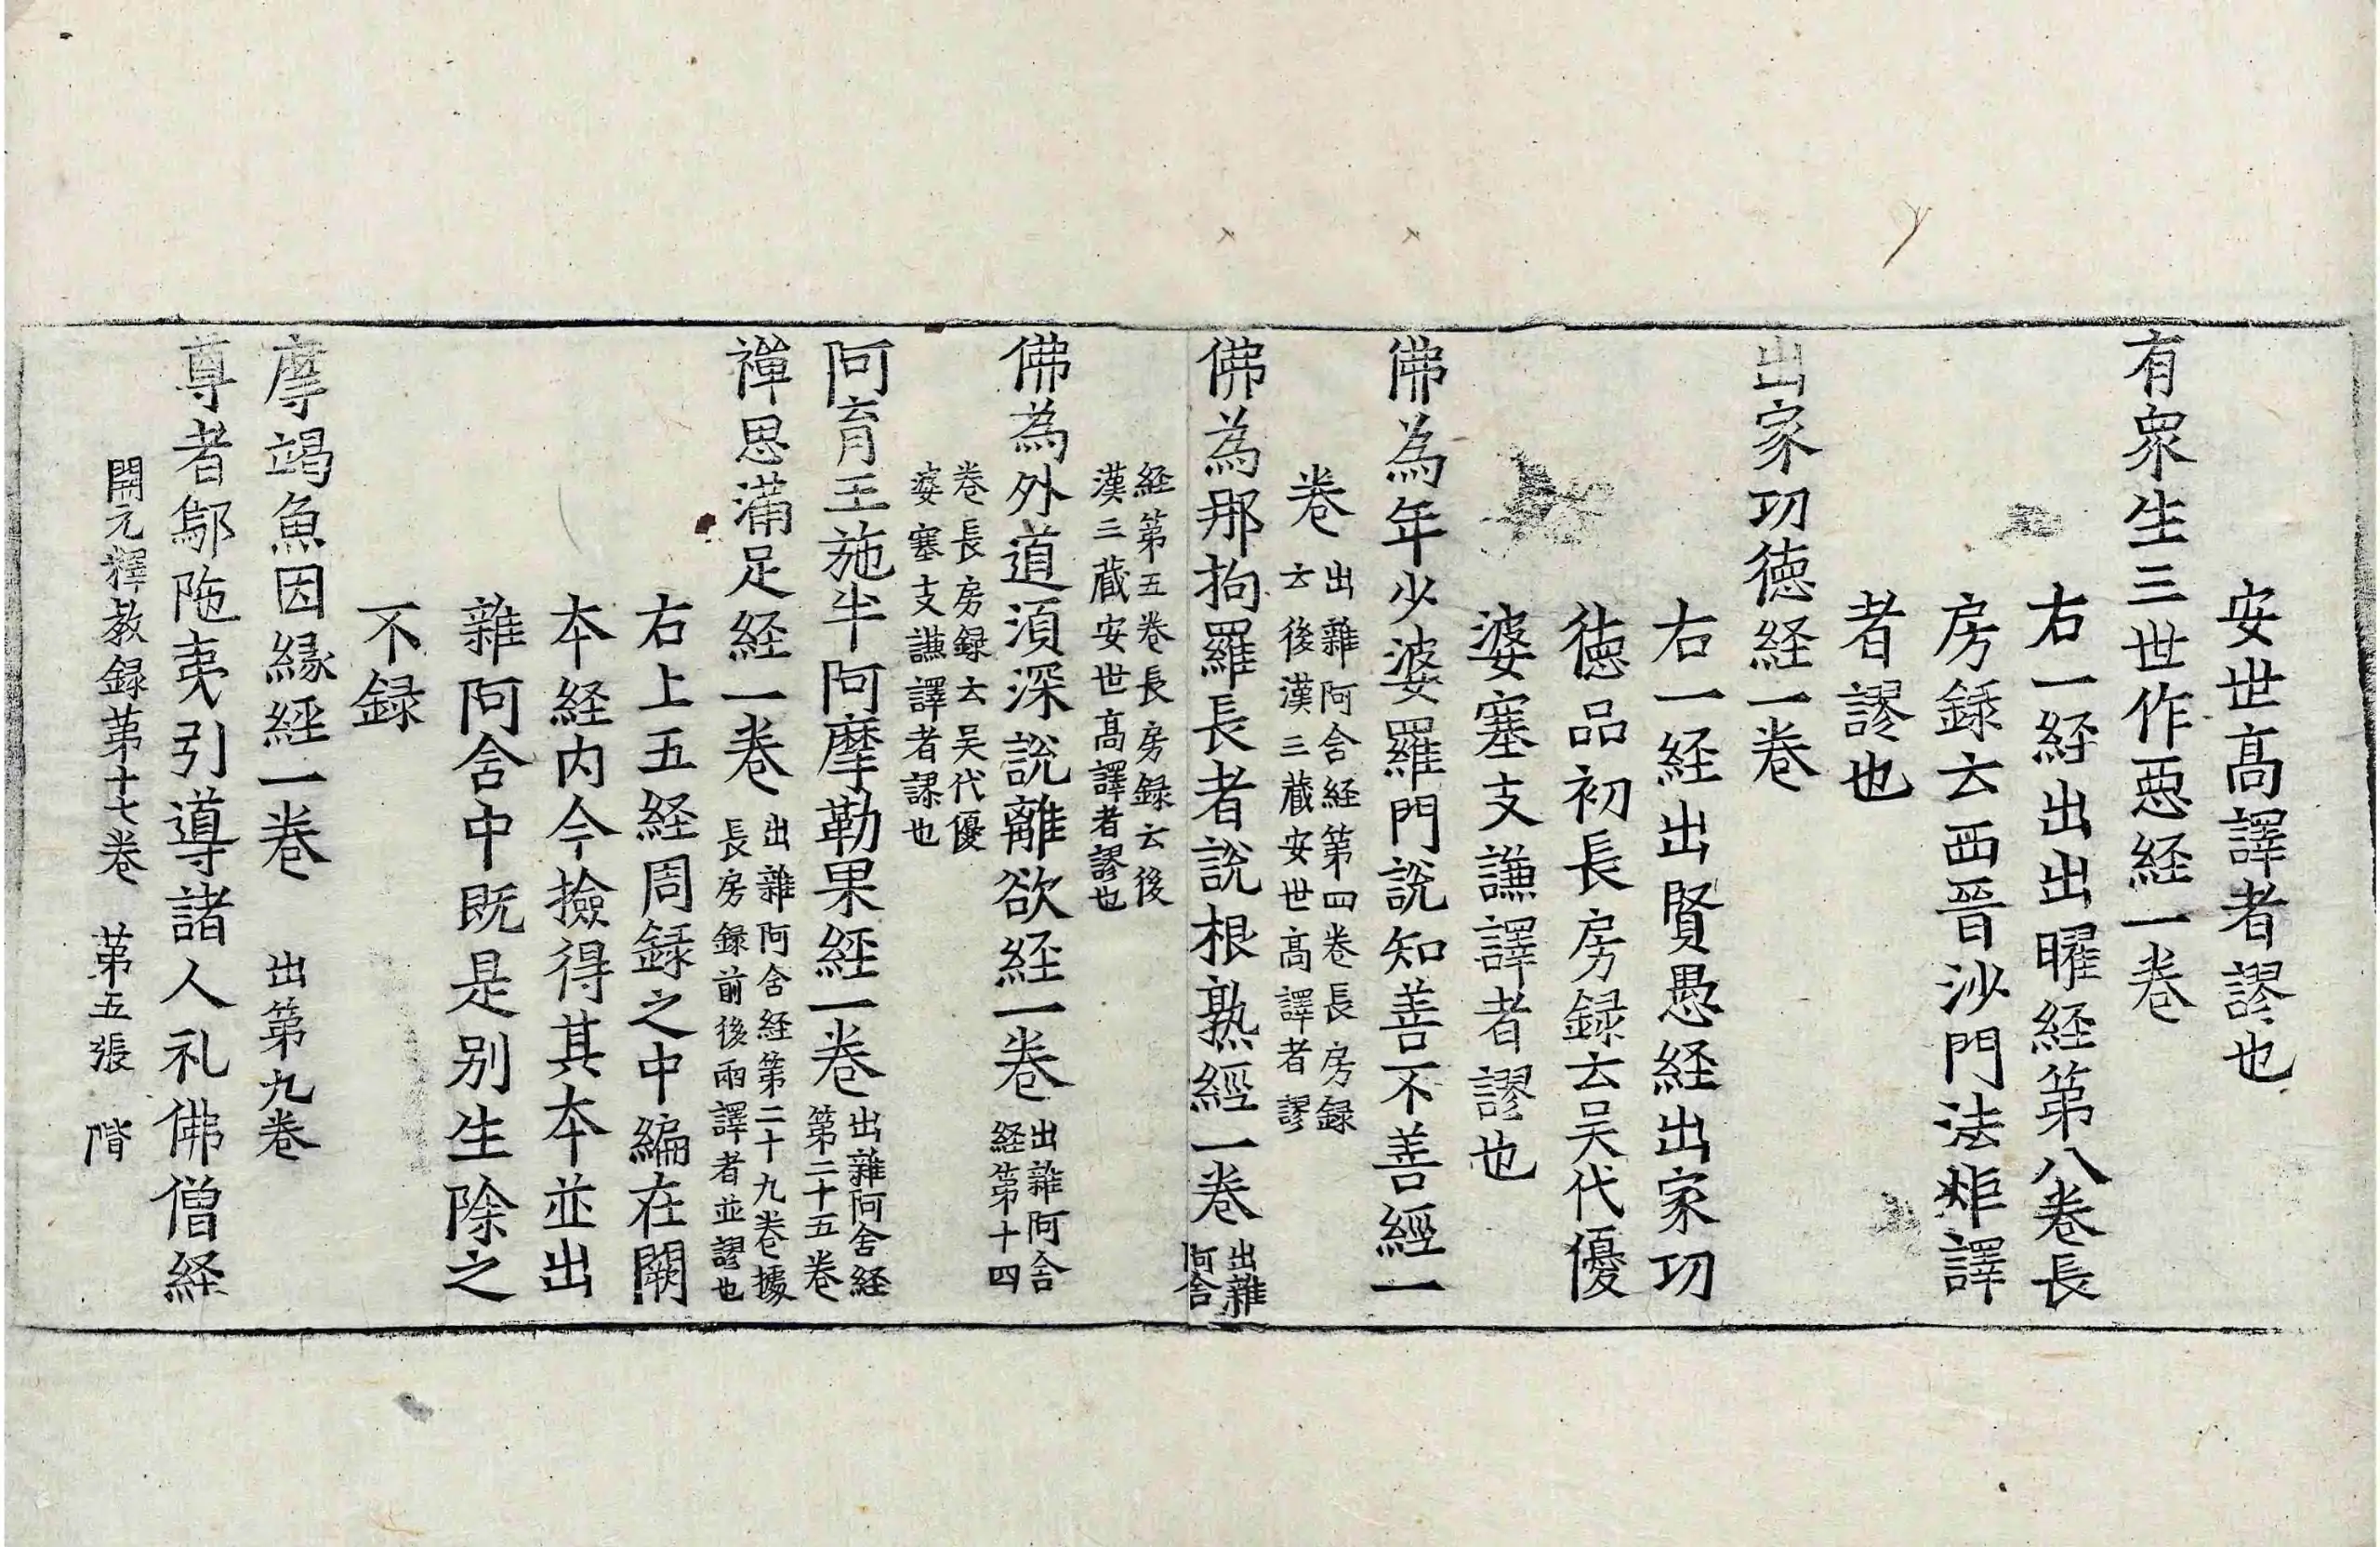 安世髙譯者謬也
有衆生三世作惡経一卷
右一経出出曜経第八卷長
房録云西晉沙門法炬譯
者謬也
出家㓛徳経一卷
右一経出賢愚経出家㓛
徳品初長房録云吴代優
婆塞支謙譯者謬也
佛為年少婆羅門説知善不善經一
卷
出雜阿含経第四卷長房録
云後漢三藏安世髙譯者謬
佛為那拘羅長者説根熟經一卷
出雜
阿含
経第五卷長房録云後
漢三藏安世髙譯者謬也
佛為外道湏深説離欲経一卷
出雜阿含
経第十四
卷長房録云吴代優
婆塞支謙譯者謬也
阿育王施半阿摩勒果経一卷
出雜阿含経
第二十五卷
禪思滿足経一卷
出雜阿含経第二十九卷據
長房録前後兩譯者並謬也
右上五経周録之中編在闕
本経内今撿得其本並出
雜阿含中既是别生除之
不録
摩竭魚因緣經一卷 出第九卷
尊者鄔陁夷引導諸人礼佛僧経
開元釋教録第十七卷 第五張 階